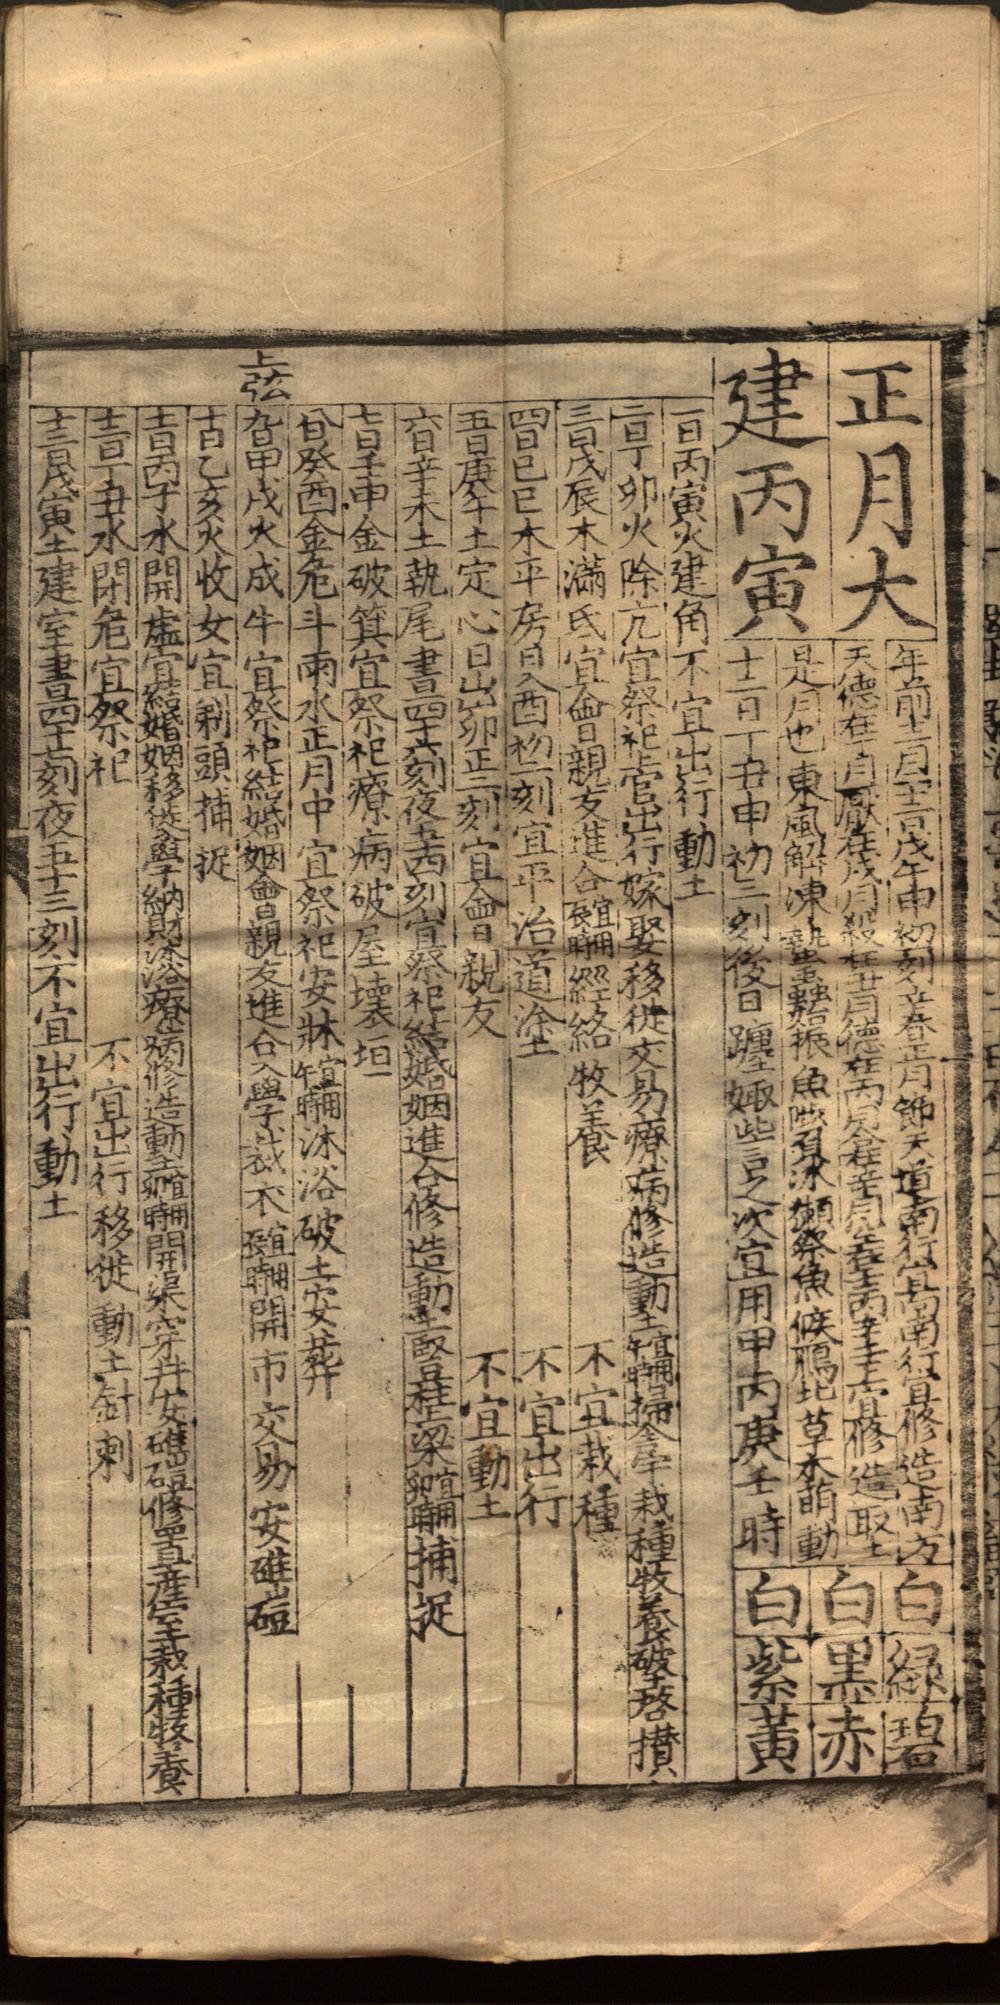 正月大
建丙寅
年前十二月十三日戊午申初刻立春正月節天道南行宜向南行宜修造南方
天德在丁月厭在戌月殺在丑月德在丙月合在辛月空在壬丙辛壬上宜修造取土
是月也東風解凍蟄蟲始振魚陟負冰獺祭魚候鴈北草木萌動
十二日丁丑申初三刻後日躔娵訾之次宜用甲丙庚壬時
白綠碧
白黑赤
白紫黃
一日丙寅火建角不宜出行動土
二日丁卯火除亢宜祭祀上官出行嫁娶移徙交易療病修造動土宜用午時掃舍宇栽種牧養破土啓攢
三日戊辰木滿氐宜會親友進人口宜用辰時經絡牧養不宜栽種
四日己巳木平房日入酉初一刻宜平治道塗不宜出行
五日庚午土定心日出卯正三刻宜會親友不宜動土
六日辛未土執尾晝四十六刻夜五十四刻宜祭祀結婚姻進人口修造動土竪柱上梁宜用卯時捕捉
七日壬申金破箕宜祭祀療病破屋壞垣
八日癸酉金危斗雨水正月中宜祭祀安牀宜用午時沐浴破土安葬
上弦
九日甲戌火成牛宜祭祀結婚姻會親友進人口入學裁衣宜用辰時開市交易安碓磑
十日乙亥火收女宜剃頭捕捉
十一日丙子水開虛宜結婚姻移徙入學納財沐浴療病修造動土宜用卯時開渠穿井安碓磑修置產室栽種牧養
十二日丁丑水閉危宜祭祀不宜出行移徙動土針刺
十三日戊寅土建室晝四十七刻夜五十三刻不宜出行動土